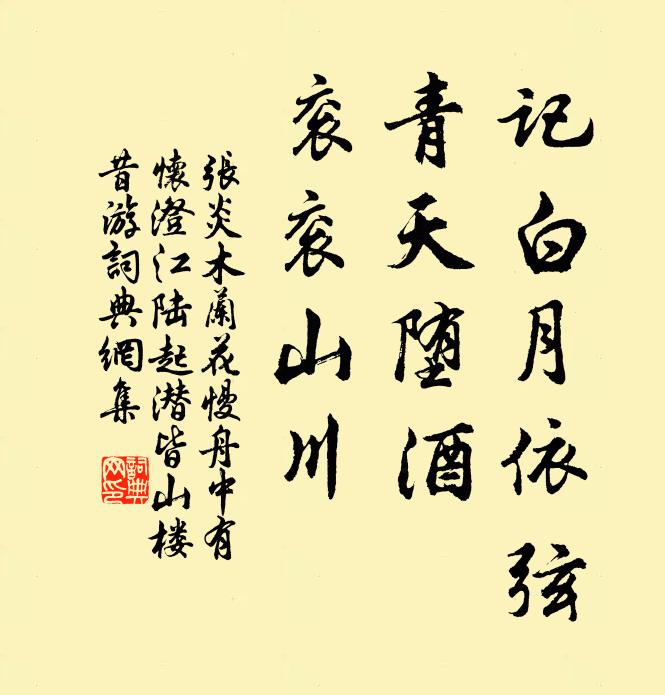 記白月依弦
青天堕酒
衮衮山川
張炎木蘭花慢舟中有
懷澄江陆起潜皆山楼
昔游詞典網集
詞典网印